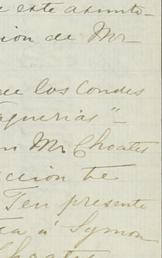 e este asunto-
ion de Mr
de los Condes
aguerias"-
n Mr Choates
ccion he
Ten presente
ea a Symon
Choates